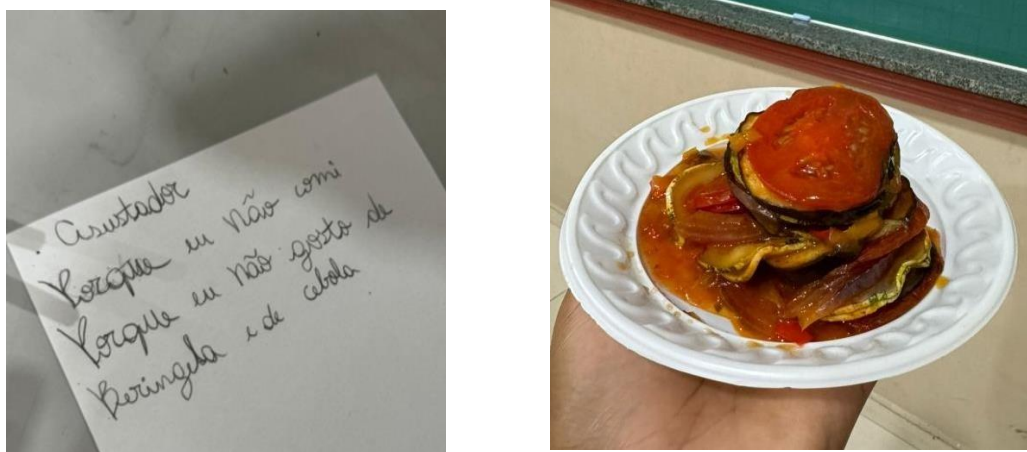 Asustador
Porque eu não comi
Porque eu não gosto de
Beringela e de cebola